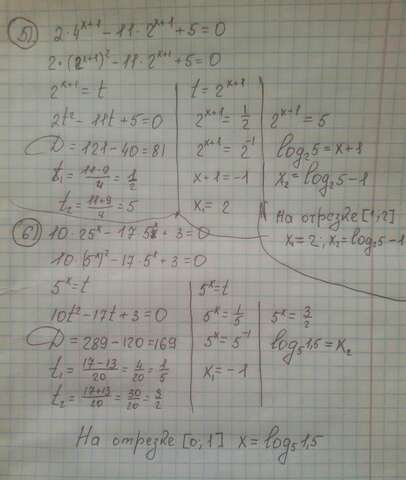 5) 2·4^{x+1} - 11·2^{x+1} + 5 = 0
2·(2^{x+1})² - 11·2^{x+1} + 5 = 0
2^{x+1} = t
2t² - 11t + 5 = 0
D = 121 - 40 = 81
t₁ = (11-9)/4 = 1/2
t₂ = (11+9)/4 = 5
t = 2^{x+1}
2^{x+1} = 1/2
2^{x+1} = 2^{-1}
x+1 = -1
x₁ = 2
2^{x+1} = 5
log₂5 = x+1
x₂ = log₂5 - 1
На отрезке [1,2]
x₁ = 2, x₂ = log₂5 - 1
6) 10·25^x - 17·5^x + 3 = 0
10·(5^x)² - 17·5^x + 3 = 0
5^x = t
10t² - 17t + 3 = 0
D = 289 - 120 = 169
t₁ = (17-13)/20 = 4/20 = 1/5
t₂ = (17+13)/20 = 30/20 = 3/2
5^x = t
5^x = 1/5
5^x = 5^{-1}
x₁ = -1
5^x = 3/2
log₅1,5 = x₂
На отрезке [0,1] x = log₅1,5